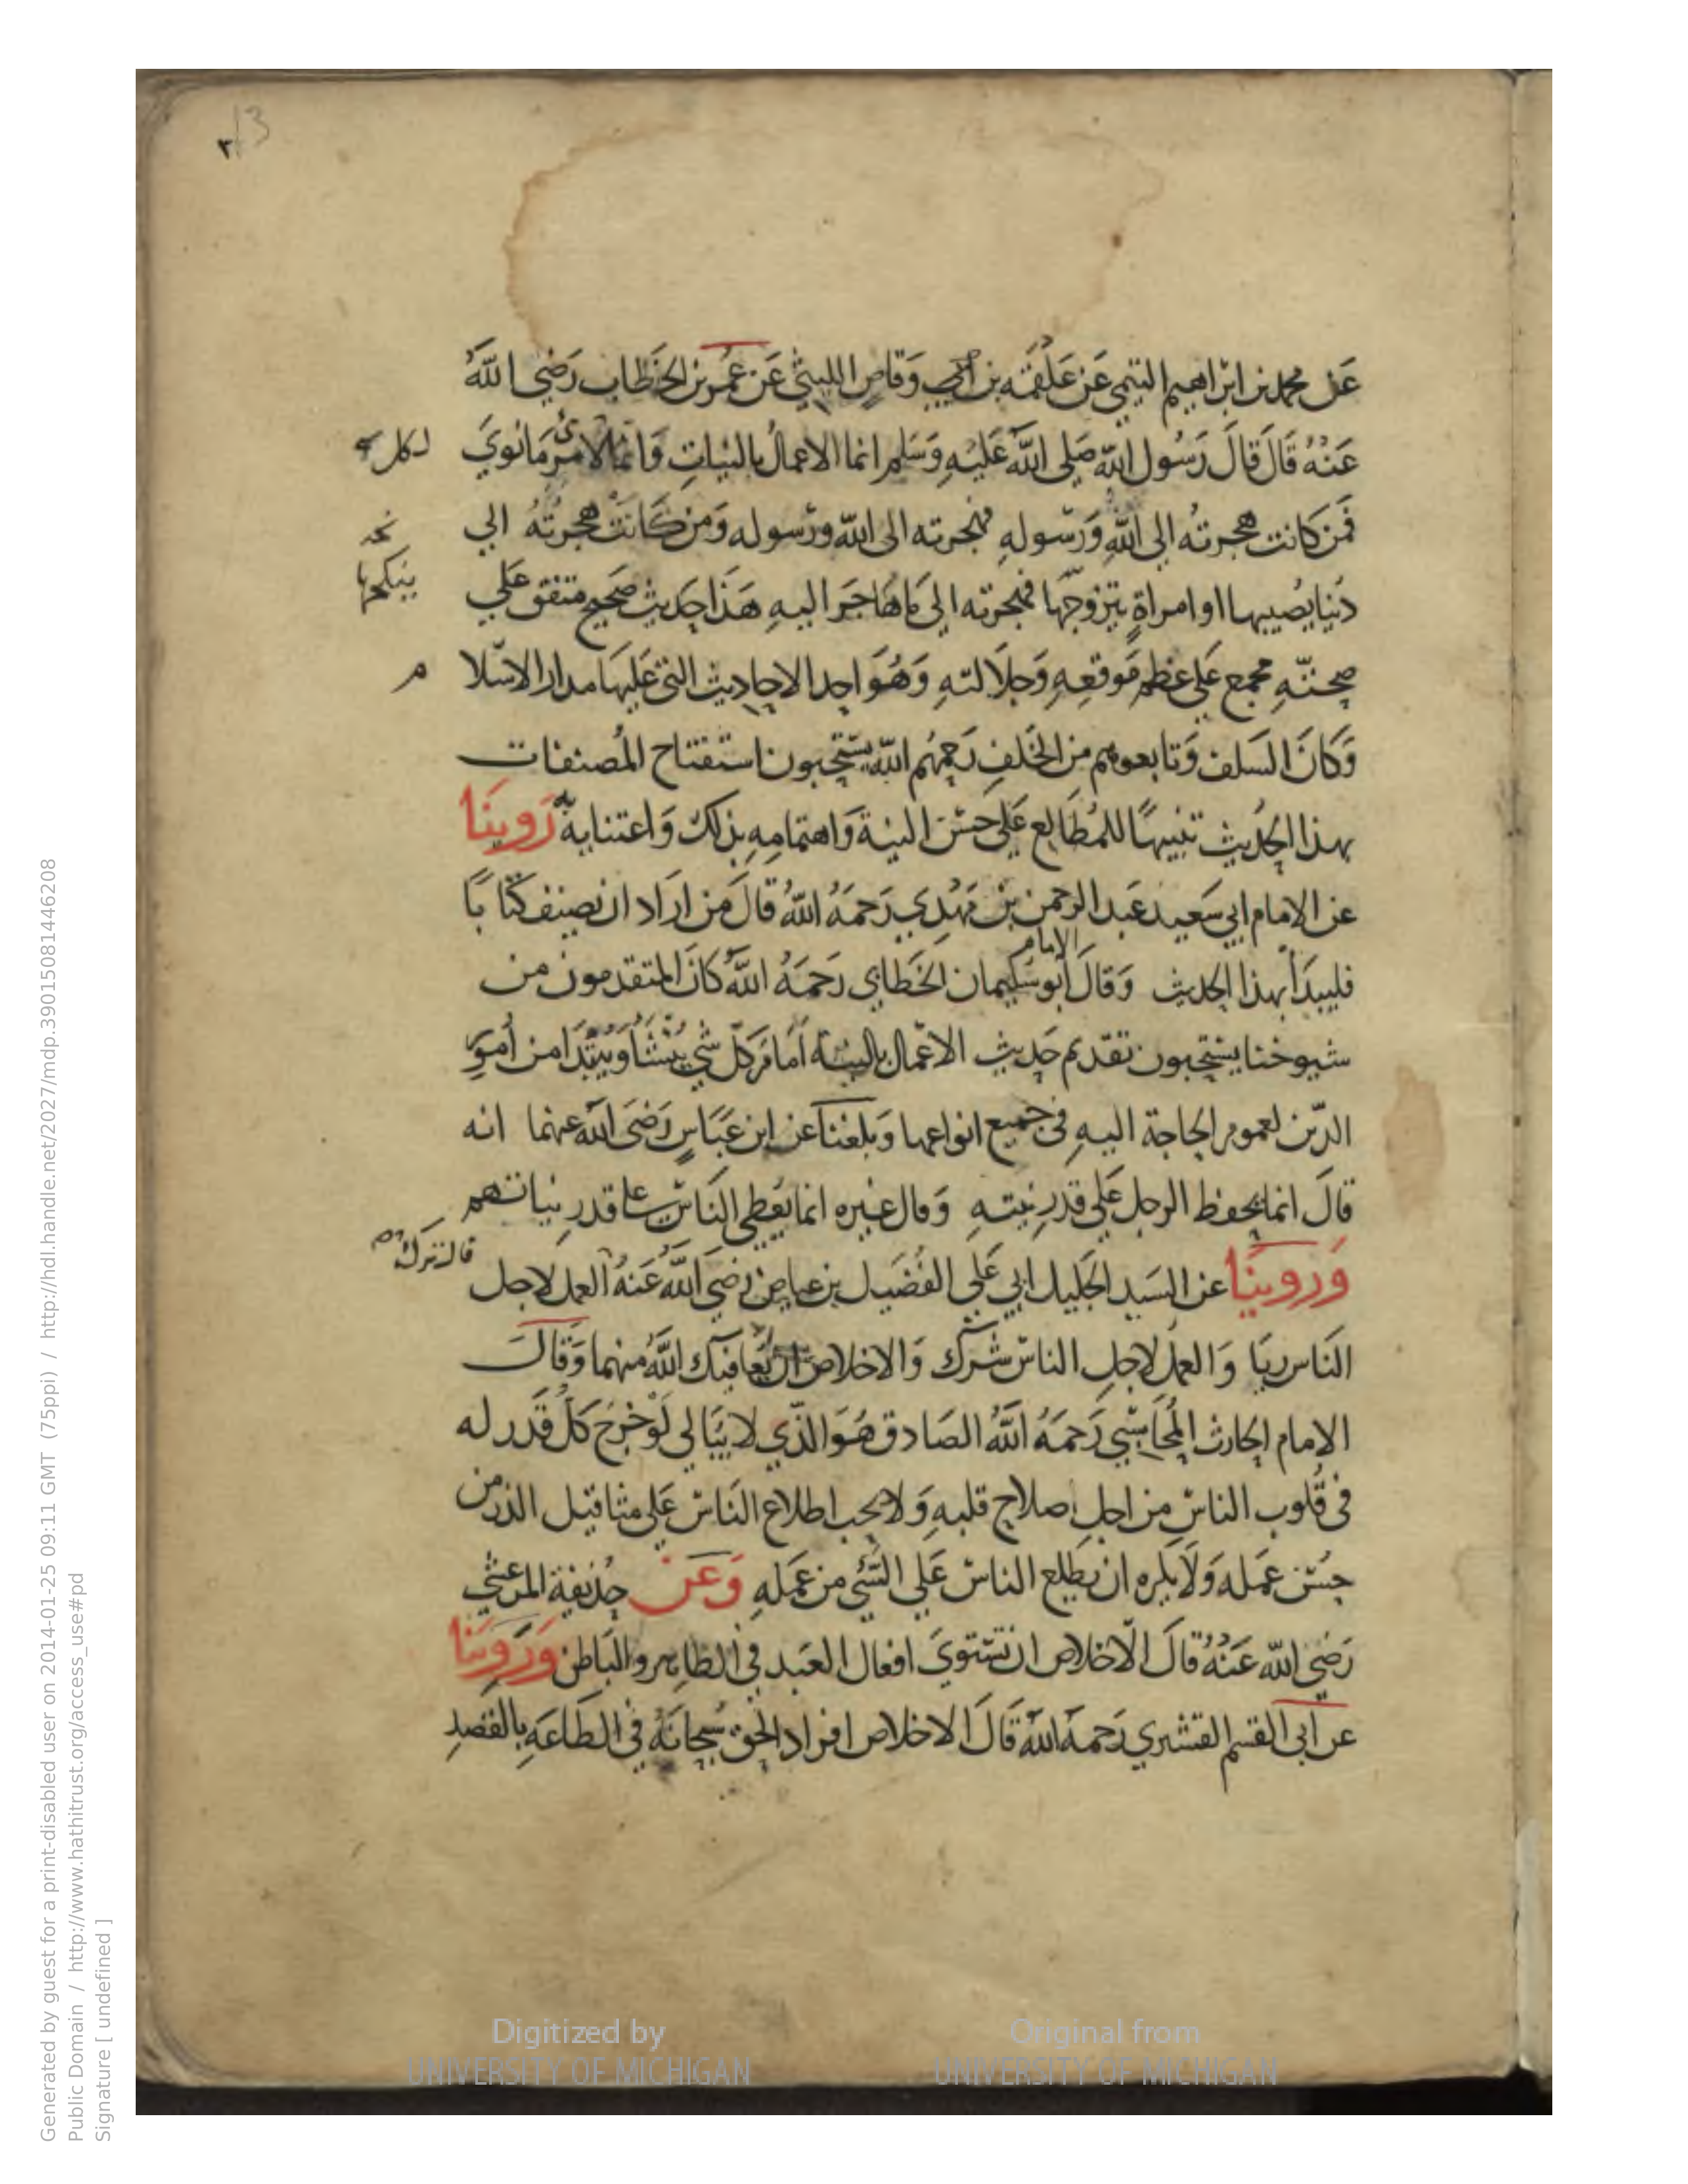 3
٣
عَن محمد بن ابرَاهيم التيمي عَن عَلقمَة بن أبي وَقاصٍ الليثي عَن عُمَر بن الخطاب رَضي اللهُ
عَنْهُ قَالَ قَالَ رَسُول الله صَلى الله عَليْهِ وَسَلم انما الاعمالُ بالنيات وَانما لامرئ مَا نوَى
لكل
فَمَن كانت هجرتُه الى اللهِ وَرَسُولهِ فهجرته الى الله ورَسوله وَمن كَانَتْ هجرتُهُ الي
دُنيا يُصيبها او امراةٍ يتزوجُها فهجرته الى مَا هَاجَر اليهِ هَذا حَديث صَحيح متفق عَلي
ينكحها
صحتهِ مجمع عَلى عظم مَوقعِهِ وَجلاَلتهِ وَهُوَ احد الاحاديث التي عَليهَا مدار الاسْلا
م
وَكانَ السَلف وَتابعوهم من الخَلفِ رَحِمَهُم الله يستحبون استفتاح المُصنفات
بهذا الحَديث تنبيهًا للمُطَالع عَلى حسْن النية وَاهتمامِهِ بذلك وَاعتنايه رَوينَا
عن الامام ابي سَعيد عَبد الرحمن بنْ مَهْدي رَحمَهُ اللهُ قالَ مَن ارَاد ان يصنف كتابًا
الامام
فليبدَأ بهذا الحديث وَقالَ أبو سُليمان الخَطابي رَحمَهُ اللهُ كانَ المتقدمون من
شيوخنا يستحبون تقديم حَديث الاعْمال بالنية أمَامَ كلّ شي يُنْشَأ وَيُبْتَدَا من أمور
الدّين لعموم الحاجة اليهِ فى جميع انواعها وَبلغنا عن ابن عَبَاسٍ رَضيَ الله عنهما انه
قالَ انما يحفظ الرجل عَلى قدرِ نيتهِ وَقال غيره انما يُعْطى النَاسُ على قدر نياتهم
وَروينَا عن السَيد الجَليل ابي عَلي الفُضَيل بن عياض رَضيَ اللهُ عَنهُ العمل لاجل
قال ترك
النَاس ريَا وَالعمل لاجلِ الناس شرْك وَالاخلاص ان يُعافيكَ اللهُ منهما وَقالَ
الامام الحَارث المُحَاسبي رَحمَهُ اللهُ الصَادق هُوَ الذّي لا يُبَالي لَوْ خرجَ كلّ قَدَر له
فى قُلوب الناسِ مِن اجل اصلاح قلبهِ وَلا يحب اطلاع النَاس عَلى مثاقيل الذر من
حُسْن عَمَله وَلَا يكره ان يَطلع الناس عَلي السَّيئ من عَمَلهِ وَعَن حذيفة المرعشي
رَضيَ الله عَنْهُ قالَ الاخلاص ان تَسْتوي افعال العَبد في الظاهر والبَاطن وَرَوينا
عن ابى القسم القشيري رَحمهُ الله قَالَ الاخلاص افراد الحَق سُبحانَهُ فى الطَاعَةِ بالقصدِ
Digitized by
UNIVERSITY OF MICHIGAN
Original from
UNIVERSITY OF MICHIGAN
Generated by guest for a print-disabled user on 2014-01-25 09:11 GMT (75ppi) / http://hdl.handle.net/2027/mdp.39015081446208
Public Domain / http://www.hathitrust.org/access_use#pd
Signature [ undefined ]